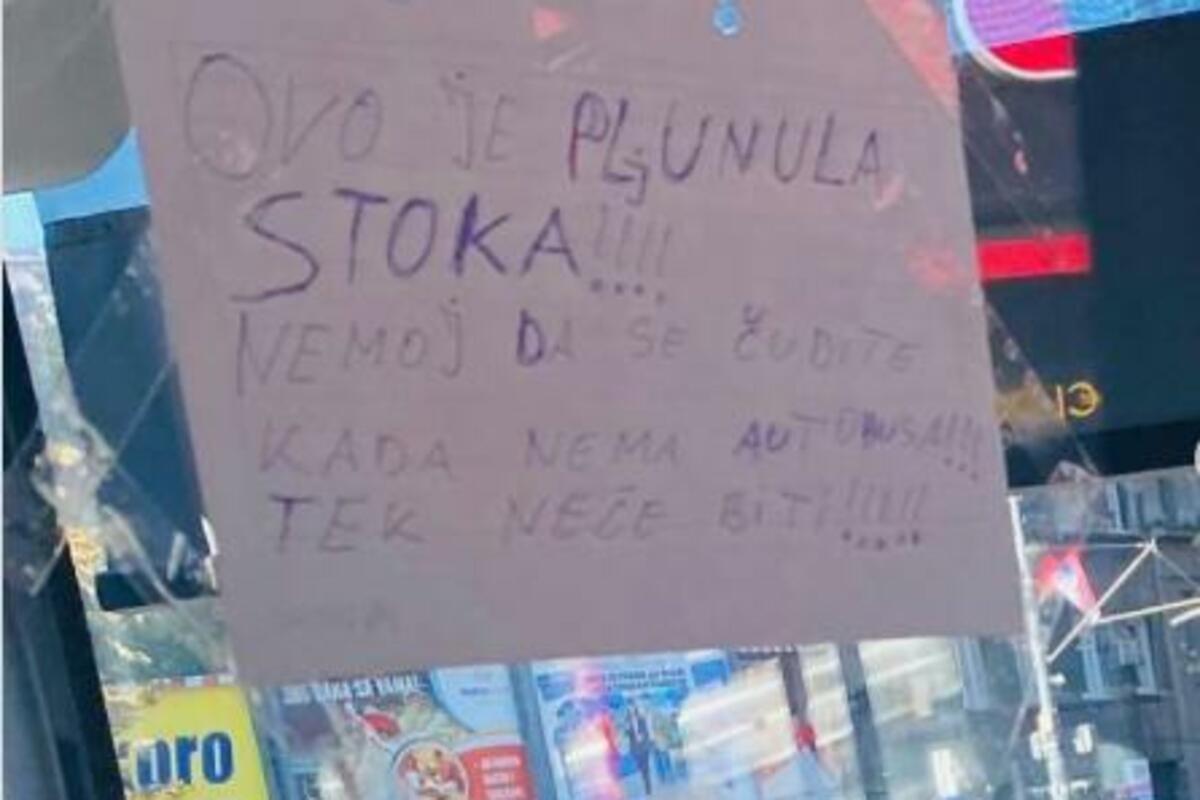 OVO JE PLjUNULA
STOKA!!!!
NEMOJ DA SE ČUDITE
KADA NEMA AUTOBUSA!!!
TEK NEĆE BITI!!!!!
pro